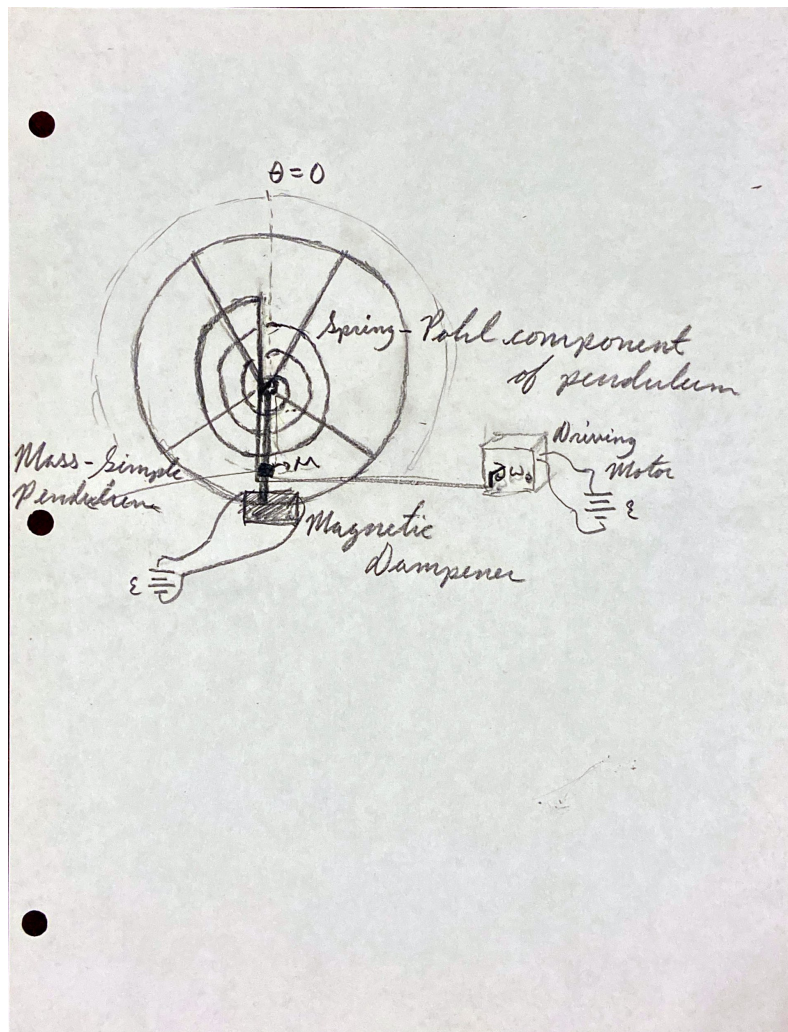 θ = 0
Spring - Pohl component
of pendulum
Mass - Simple
Pendulum
M
ω₀
Driving
Motor
ε
Magnetic
Dampener
ε